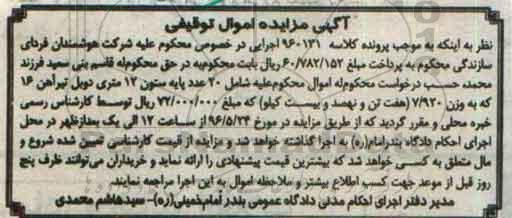 آگهی مزایده اموال توقیفی
نظر به اینکه به موجب پرونده کلاسه ۹۶۰۱۲۱ اجرایی در خصوص محکوم علیه شرکت هوشمندان فردای
سازندگی محکوم به پرداخت مبلغ ۶۰/۷۸۲/۱۵۲ ریال بابت محکوم‌به در حق محکوم‌له قاسم بنی سعید فرزند
محمد، حسب درخواست محکوم‌له اموال محکوم‌علیه شامل ۲۰ عدد پایه ستون ۱۲ متری دوبل تیرآهن ۱۶
که به وزن ۷/۹۲۰ (هفت تن و نهصد و بیست کیلو) که مبلغ ۷۲/۰۰۰/۰۰۰ ریال توسط کارشناس رسمی
خبره محلی و مقرر گردید که از طریق مزایده در مورخ ۹۶/۵/۲۴ از ساعت ۱۲ الی یک بعدازظهر در محل
اجرای احکام دادگاه بندرامام(ره) به اجرا گذاشته خواهد شد و مزایده از قیمت کارشناسی تعیین شده شروع و
مال متعلق به کسی خواهد شد که بیشترین قیمت پیشنهادی را ارائه نماید و خریداران می‌توانند ظرف پنج
روز قبل از موعد جهت کسب اطلاع بیشتر و ملاحظه اموال به این اجرا مراجعه نمایند.
مدیر دفتر اجرای احکام مدنی دادگاه عمومی بندر امام خمینی(ره)- سیدهاشم محمدی